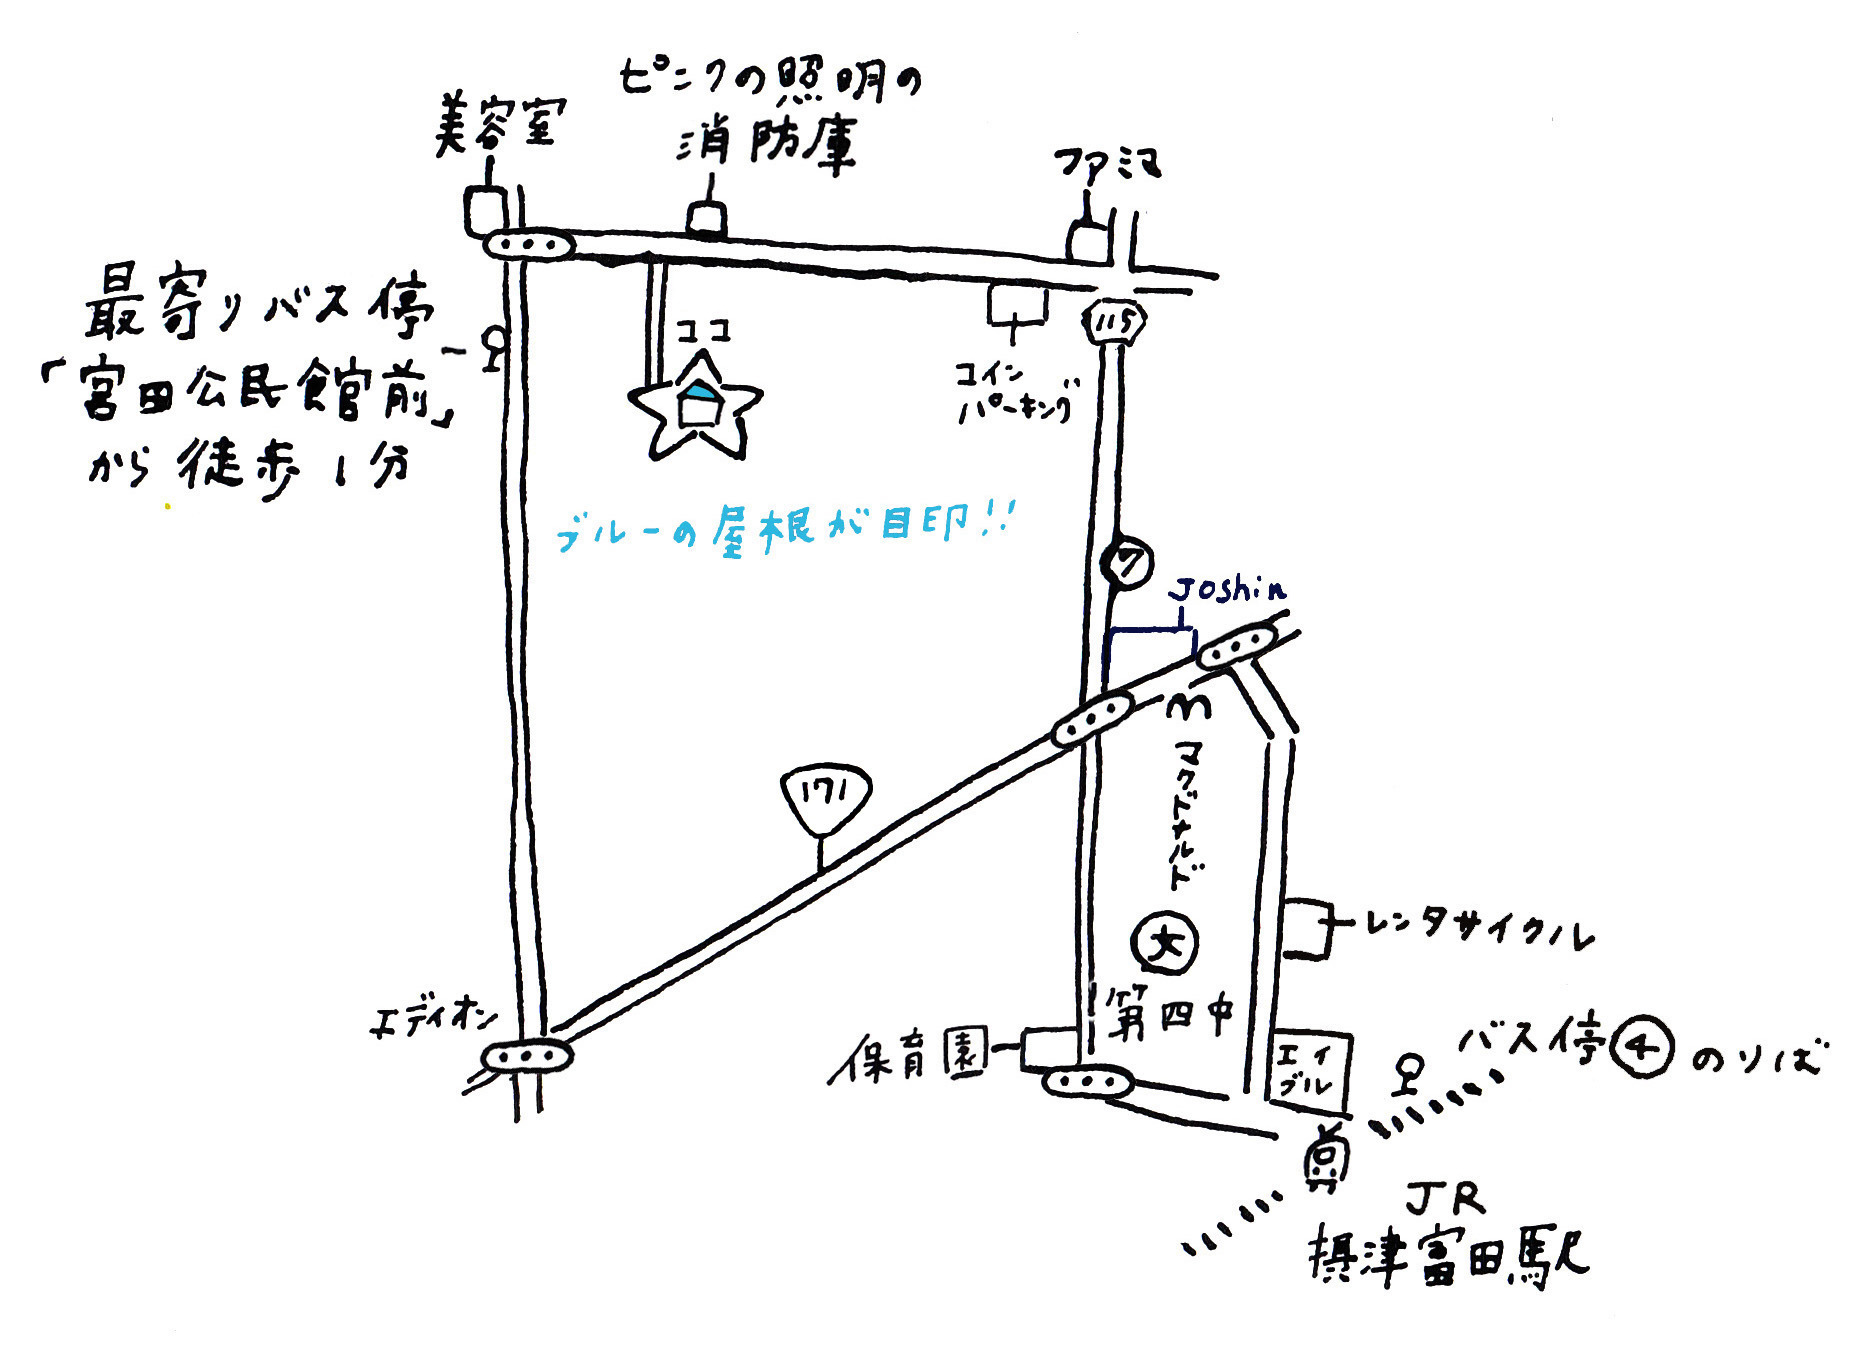 ピンクの照明の
消防庫
美容室
ファミマ
最寄りバス停
「宮田公民館前」
から徒歩1分
ココ
115
コイン
パーキング
ブルーの屋根が目印!!
7
Joshin
マクドナルド
171
レンタサイクル
文
第四中
エディオン
保育園
エイ
ブル
バス停④のりば
JR
摂津富田駅